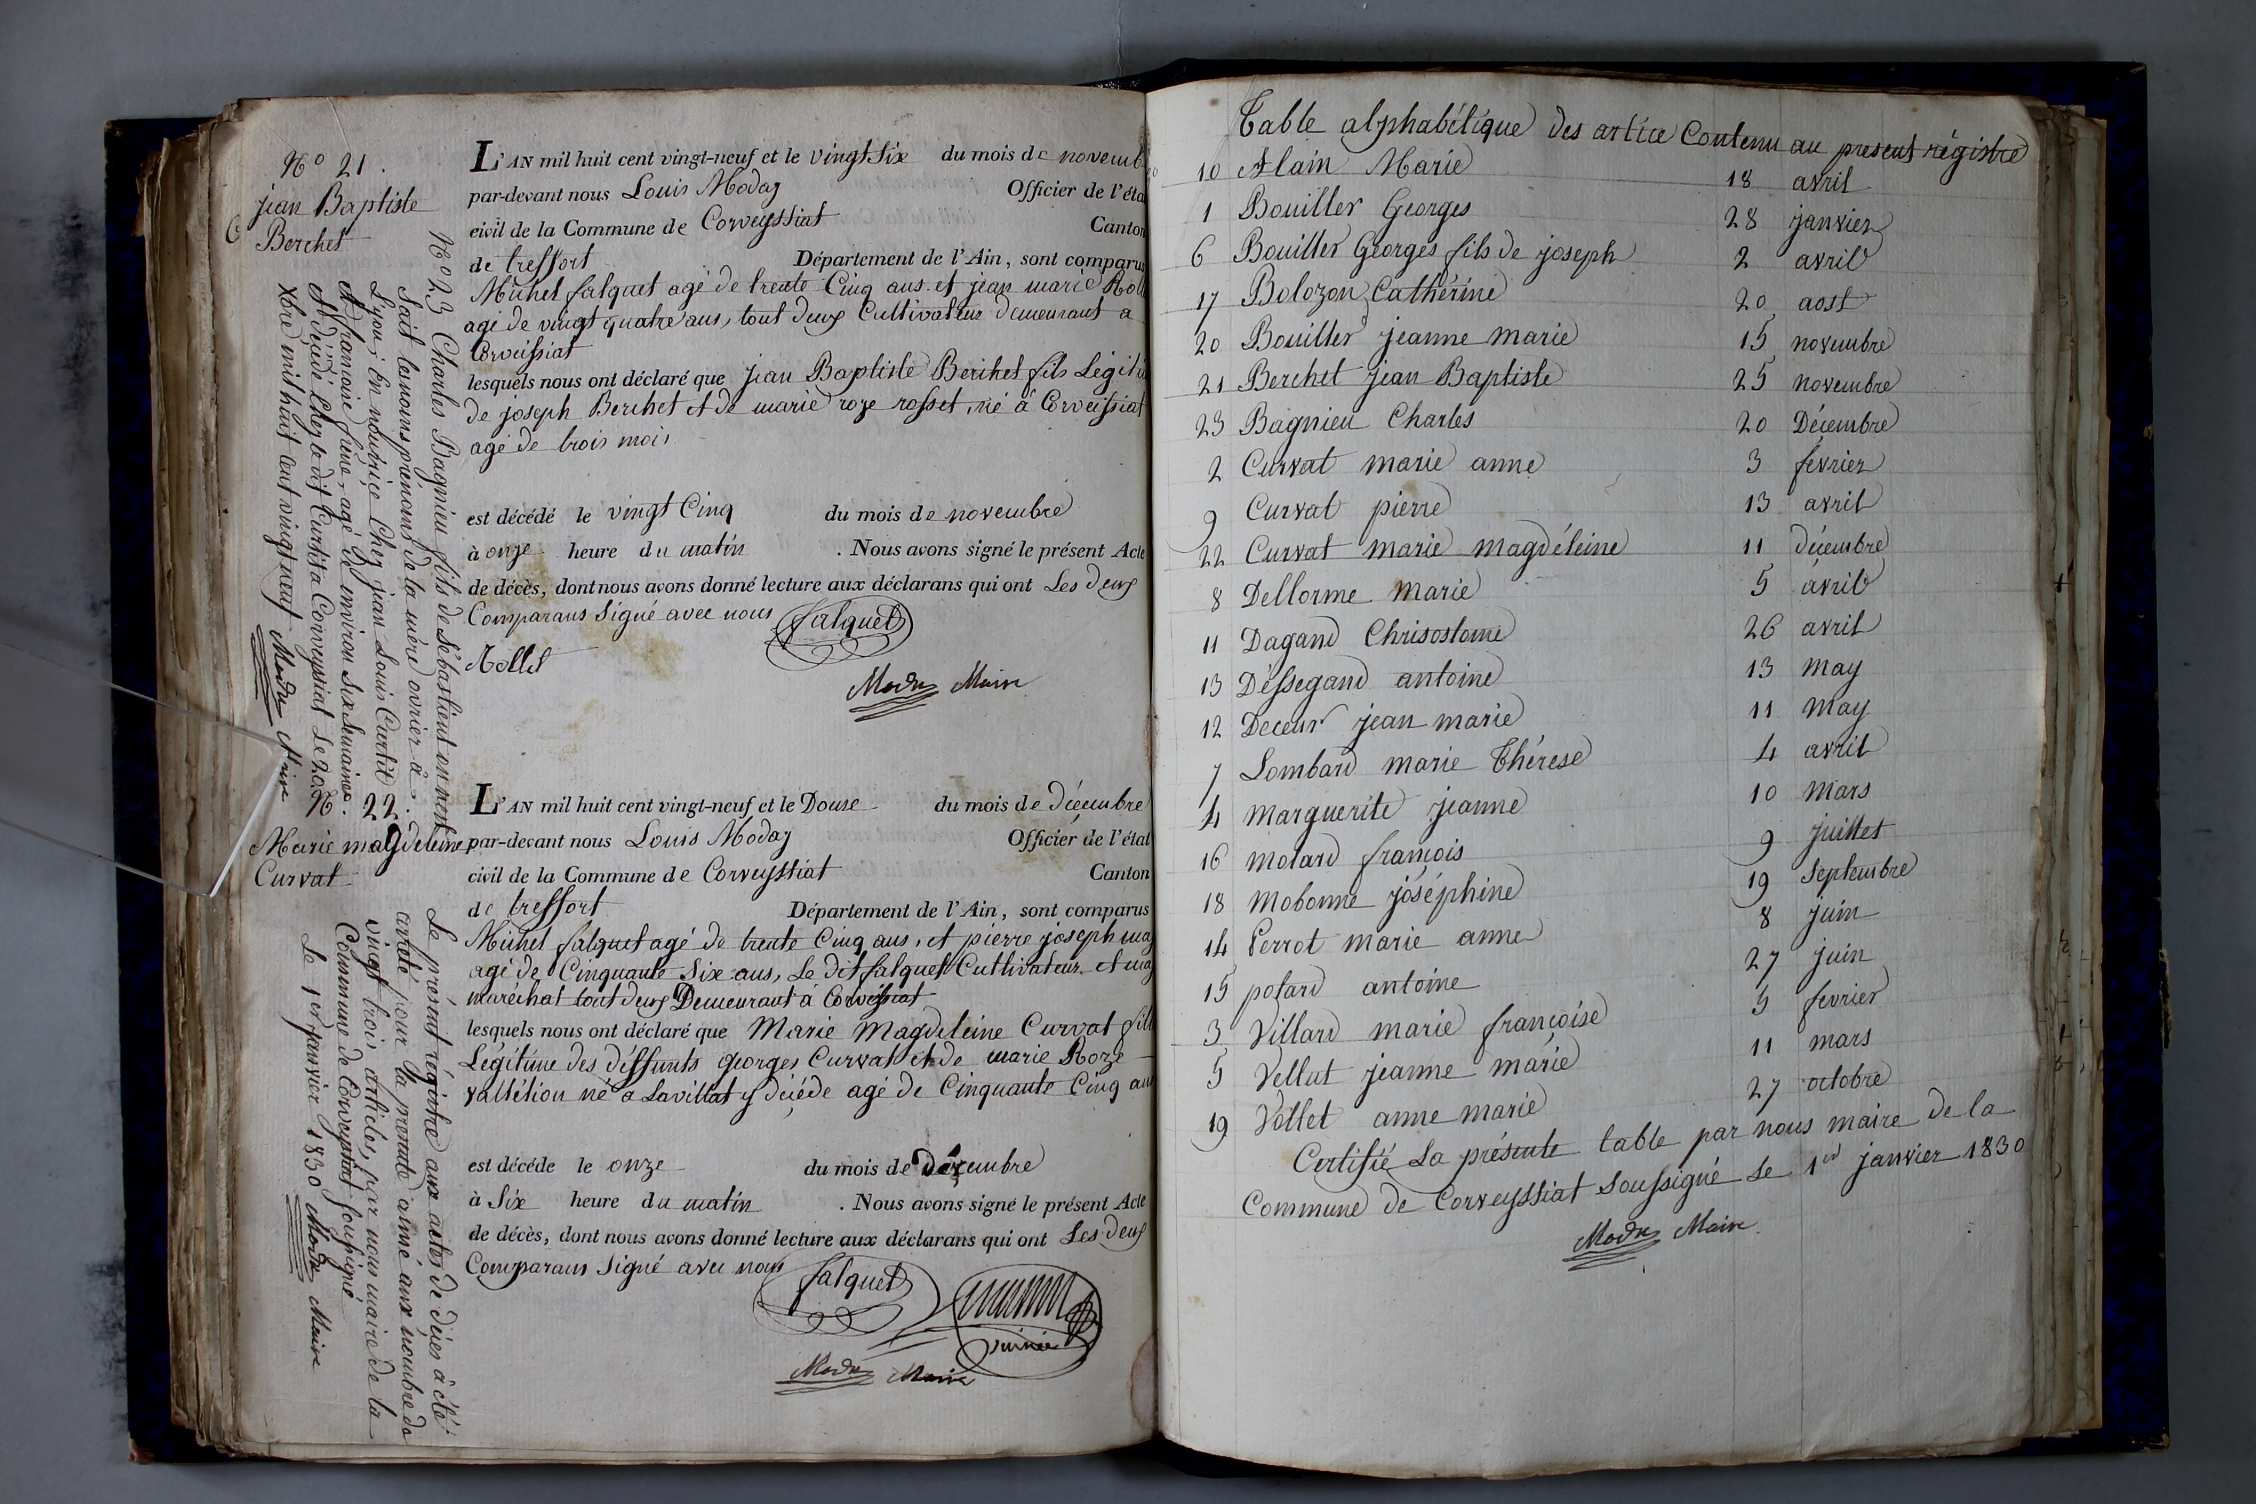 N° 21.
jean Baptiste
Berchet
L'AN mil huit cent vingt-neuf et le vingt Six du mois de novemb
par-devant nous Louis Moday Officier de l'éta
civil de la Commune de Corveyssiat Canton
de treffort Département de l'Ain, sont comparus
Michel falquet agé de trente Cinq ans et jean marie Roll
agé de vingt quatre ans, tout deux Cultivateur demeurant a
Corveissiat
lesquels nous ont déclaré que jean Baptiste Berchet fils Légiti
de joseph Berchet et de marie roze rosset, né a Corveissiat
agé de trois mois
est décédé le vingt Cinq du mois de novembre
à onze heure du matin . Nous avons signé le présent Acte
de décès, dont nous avons donné lecture aux déclarans qui ont Les deux
Comparans Signé avec nous falquet
Rollet
Moday Maire
N° 23 Charles Bagnieu fils de Sébastient on nent
Sait le noms prénoms de la mère ovrier a
Lyon, En nourrice Chez jean Louis Curtit
A framoire fiene, agé de environ Six Semaines
Et décédé Chez le dit Curtit a Corveyssiat Le 20
Xbre mil huit cent vingt neuf Moday Maire
N° 22
Marie magdeleine
Curvat
L'AN mil huit cent vingt-neuf et le Douse du mois de décembre
par-devant nous Louis Moday Officier de l'état
civil de la Commune de Corveyssiat Canton
de treffort Département de l'Ain, sont comparus
Michel falquet agé de trente Cinq ans, et pierre joseph
agé de Cinquante Six ans, Le dit falquet Cultivateur et
maréchal tout deux Demeurant à Corveissiat
lesquels nous ont déclaré que Marie Magdeleine Curvat fill
Légitime des diffunts georges Curvat et de marie Roze
né a Lavillat y décéde agé de Cinquante Cinq ans
est décéde le onze du mois de décembre
à Six heure du matin . Nous avons signé le présent Acte
de décès, dont nous avons donné lecture aux déclarans qui ont Les deux
Comparans Signé avec nous falquet
Moday Maire
Le présent régistre aux actes de décès à été
arreté pour la presente anné aux nombre de
vingt trois articles, par nous maire de la
Commune de Corveyssiat soussigné
Le 1er janvier 1830 Moday Maire
Table alphabétique des artice Contenu au present régistre
10 Alain Marie 18 avril
1 Bouiller Georges 28 janvier
6 Bouiller Georges fils de joseph 2 avril
17 Bolozon Cathérine 20 aost
20 Bouiller jeanne marie 15 novembre
21 Berchet jean Baptiste 25 novembre
23 Bagnieu Charles 20 Décembre
2 Curvat marie anne 3 févrièr
9 Curvat pierre 13 avril
22 Curvat marie magdéleine 11 décembre
8 Dellorme Marie 5 avril
11 Dagand Chrisostome 26 avril
13 Déssegand antoine 13 may
12 Deceur jean marie 11 may
7 Lombard marie Thérese 4 avril
4 Marguerite jeanne 10 mars
16 Molard françois 9 juillet
18 Mobonne joséphine 19 Septembre
14 Perrot marie anne 8 juin
15 potard antoine 27 juin
3 Villard marie françoise 5 fevrier
5 Vellut jeanne marie 11 mars
19 Vollet anne marie 27 octobre
Certifié La présente table par nous maire de la
Commune de Corveyssiat Soussigné Le 1er janvier 1830
Moday Maire